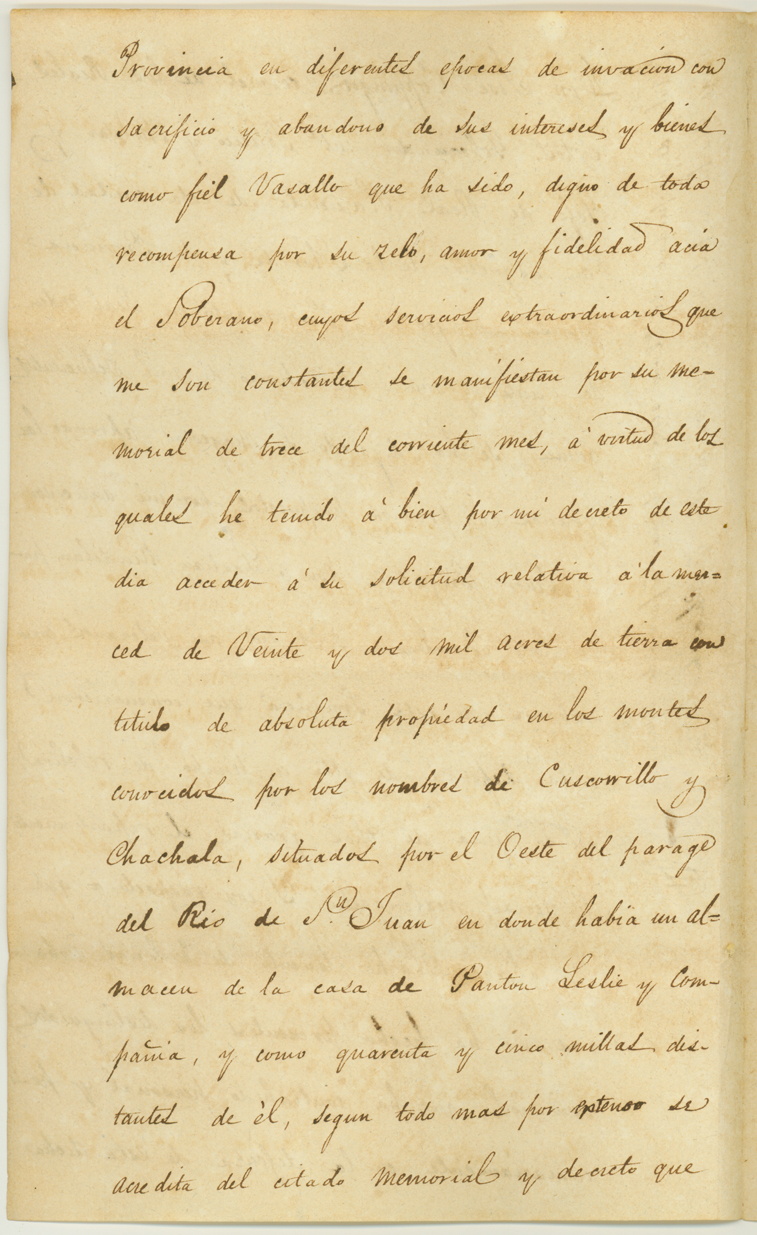 Provincia en diferentes epocas de invacion con
sacrificio y abandono de sus intereses y bienes
como fiel Vasallo que ha sido, digno de toda
recompensa por su zelo, amor y fidelidad acia
el Soberano, cuyos servicios extraordinarios que
me son constantes se manifiestan por su me-
morial de trece del corriente mes, á virtud de los
quales he tenido á bien por mi decreto de este
dia acceder á su solicitud relativa á la mer=
ced de Veinte y dos mil acres de tierra con
titulo de absoluta propiedad en los montes
conocidos por los nombres de Cuscowillo y
Chachala, situados por el Oeste del parage
del Rio de Sn. Juan en donde habia un al=
macen de la casa de Panton Leslie y Com-
pañia, y como quarenta y cinco millas dis-
tantes de él, segun todo mas por extenso se
acredita del citado Memorial y decreto que